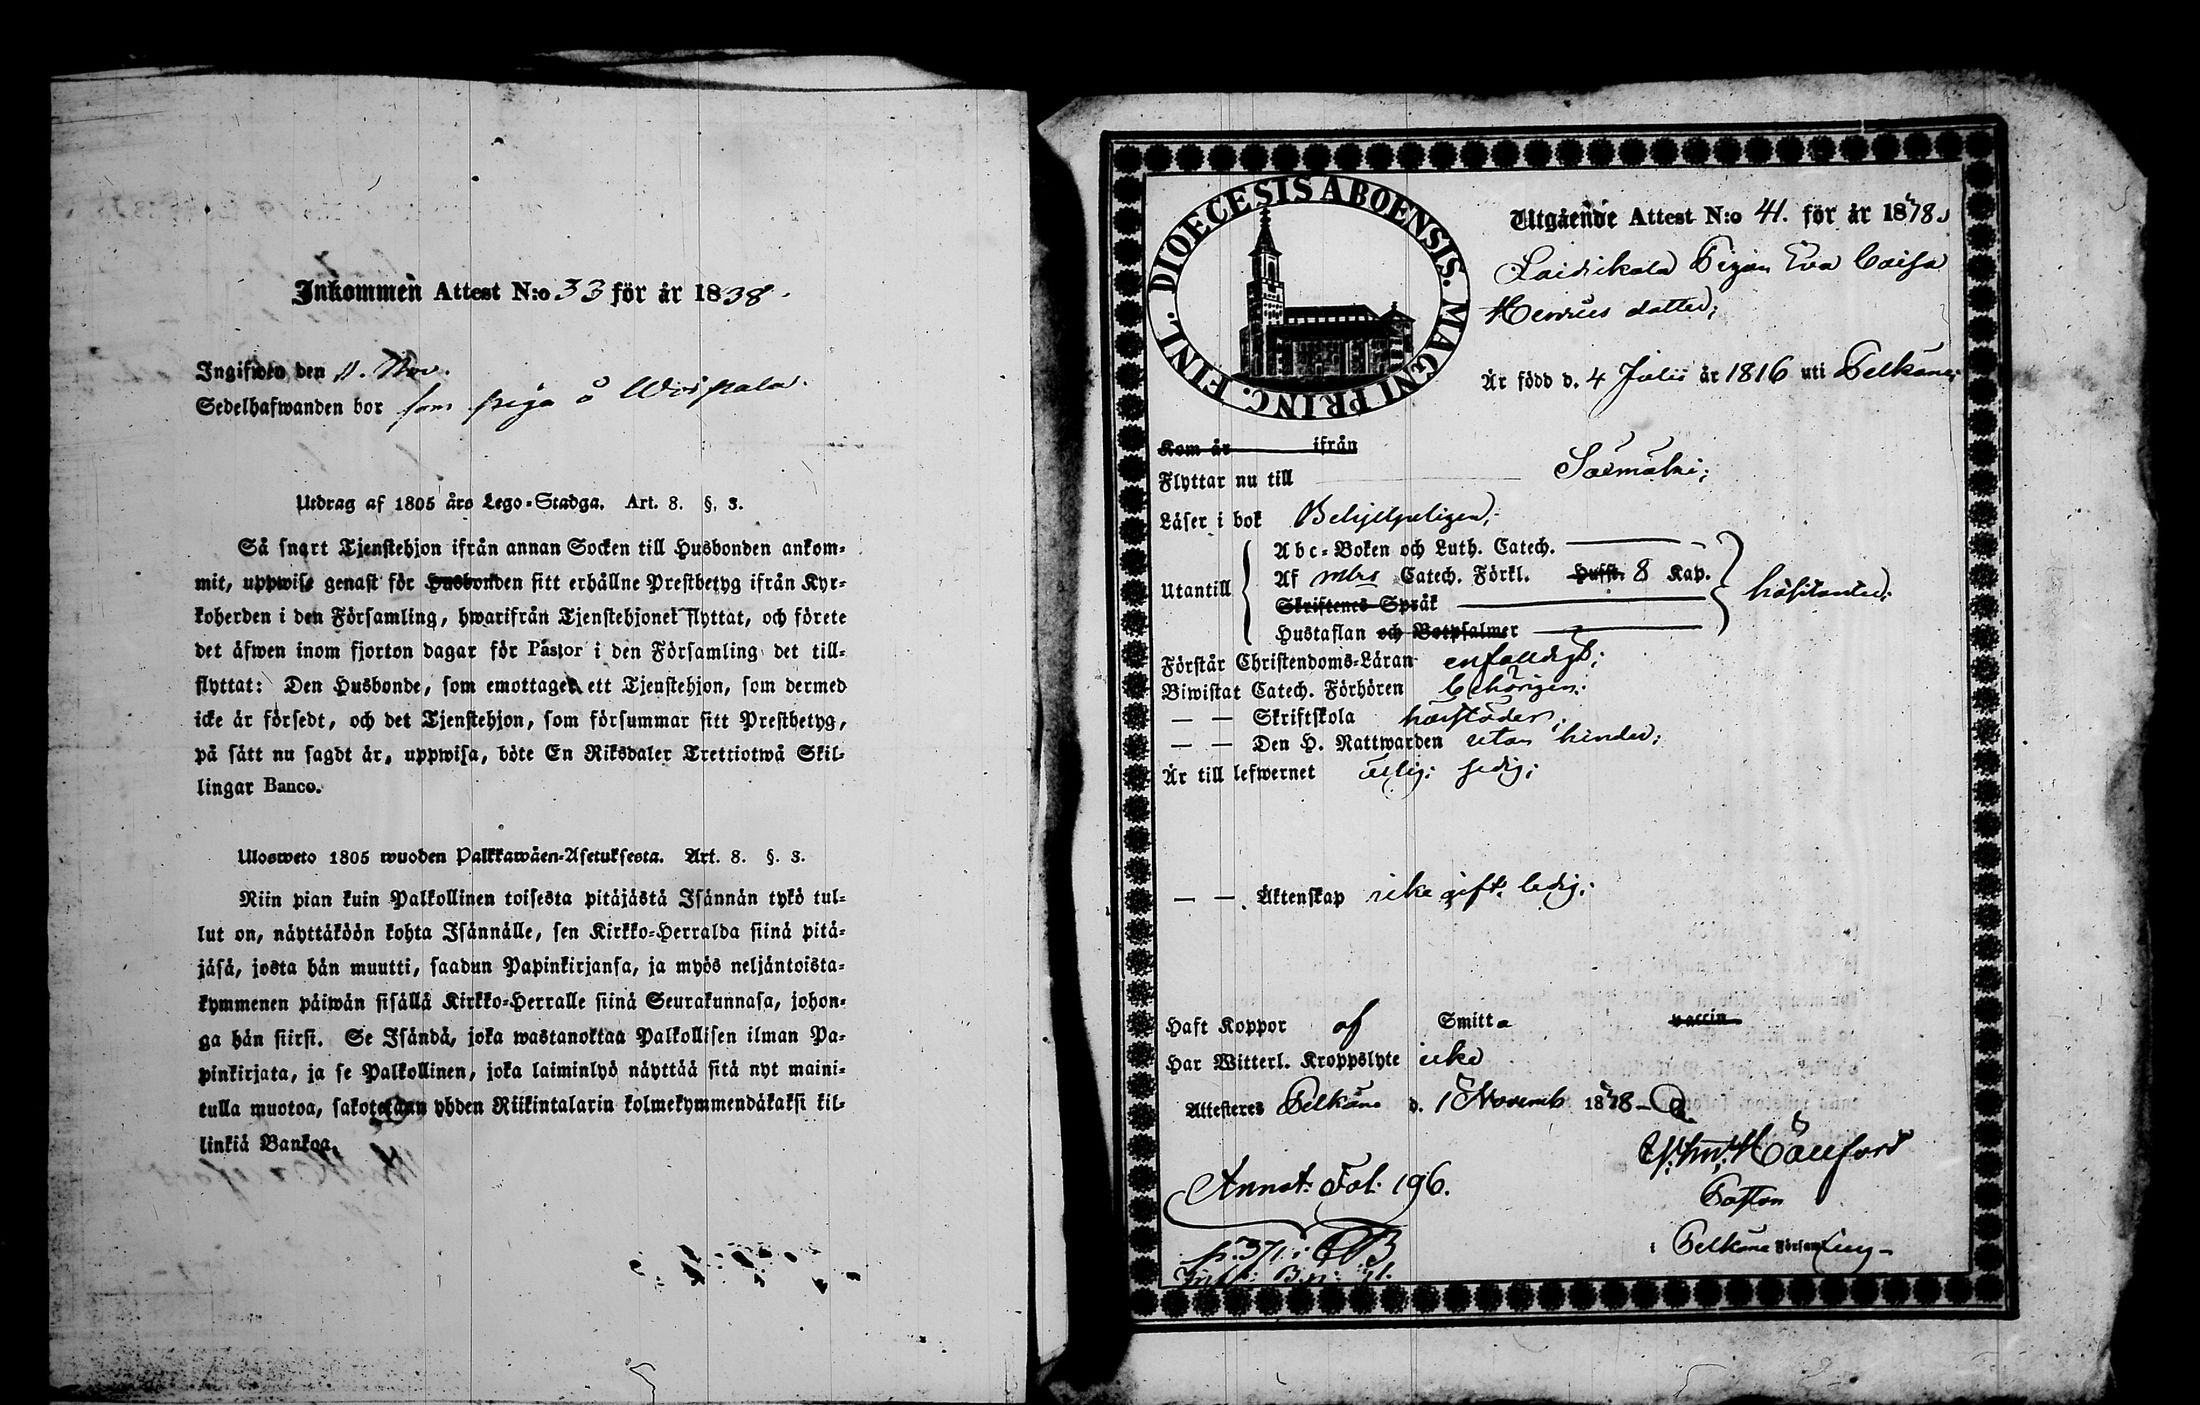 Inkommen Attest N:o 33 för år 1838.
Ingifwen den 11. Nov.
Sedelhafwanden bor som piga å
Utdrag af 1805 års Lego-Stadga. Art. 8. §. 3.
Så snart Tjenstehjon ifrån annan Socken till Husbonden ankom-
mit, uppwise genast för Husbonden sitt erhållne Prestbetyg ifrån Kyr-
koherden i den Församling, hwarifrån Tjenstehjonet flyttat, och förete
det äfwen inom fjorton dagar för Pastor i den Församling det till-
flyttat: Den Husbonde, som emottager ett Tjenstehjon, som dermed
icke är försedt, och det Tjenstehjon, som försummar sitt Prestbetyg,
på sätt nu sagdt är, uppwisa, böte En Riksdaler Trettiotwå Skil-
lingar Banco.
Ulosweto 1805 wuoden Palkkawäen-Asetuksesta. Art. 8. §. 3.
Niin pian kuin Palkollinen toisesta pitäjästä Isännän tykö tul-
lut on, näyttäköön kohta Isännälle, sen Kirkko-Herralda siinä pitä-
jäsä, josta hän muutti, saadun Papinkirjansa, ja myös neljäntoista-
kymmenen päiwän sisällä Kirkko-Herralle siinä Seurakunnasa, johon-
ga hän siirsi. Se Isändä, joka wastanottaa Palkollisen ilman Pa-
pinkirjata, ja se Palkollinen, joka laiminlyö näyttää sitä nyt maini-
tulla muotoa, sakotetaan yhden Riikintalarin kolmekymmendäkaksi kil-
linkiä Bankoa.
DIOECESIS ABOENSIS. MAGNI PRINC. FINL.
Utgående Attest N:o 41. för år 1838.
Pigan Eva Caisa
dotter;
Är född d. 4 Julii år 1816 uti Pelkäne;
Kom år ifrån
Flyttar nu till Säxmäki;
Läser i bok Behjelpeligen;
Abc-Boken och Luth. Catech.
Utantill Af Catech. Förkl. Husst. 8 Kap.
Skriftenes Språk
Hustaflan och Botpsalmer
Förstår Christendoms-Läran enfaldigt;
Biwistat Catech. Förhören behörigen;
— — Skriftskola härstädes;
— — Den H. Nattwarden utan hinder;
Är till lefwernet ärlig; sedig;
— — Äktenskap icke gift. ledig;
Haft Koppor af Smitta vaccin
Har Witterl. Kroppslyte icke
Attesteras Pelkäne d. 1 Novemb 1838
Pastor
Annot: Fol. 196.
i Pelkäne Församling
p. 371: